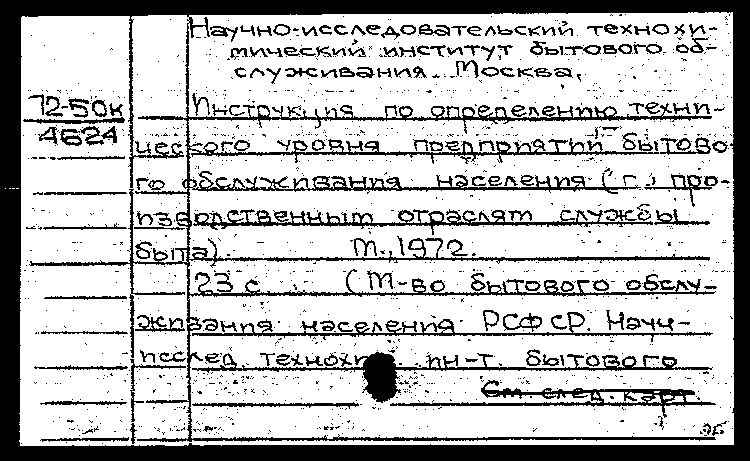 Научно-исследовательский технохи-
мический институт бытового об-
служивания. Москва.
72-50к
4624
Инструкция по определению техни-
ческого уровня предприятий бытово-
го обслуживания населения (г., про-
изводственным отраслям службы
быта). М., 1972.
23 с. (М-во бытового обслу-
живания населения РСФСР. Науч-
исслед. ин-т. бытового
См след. карт